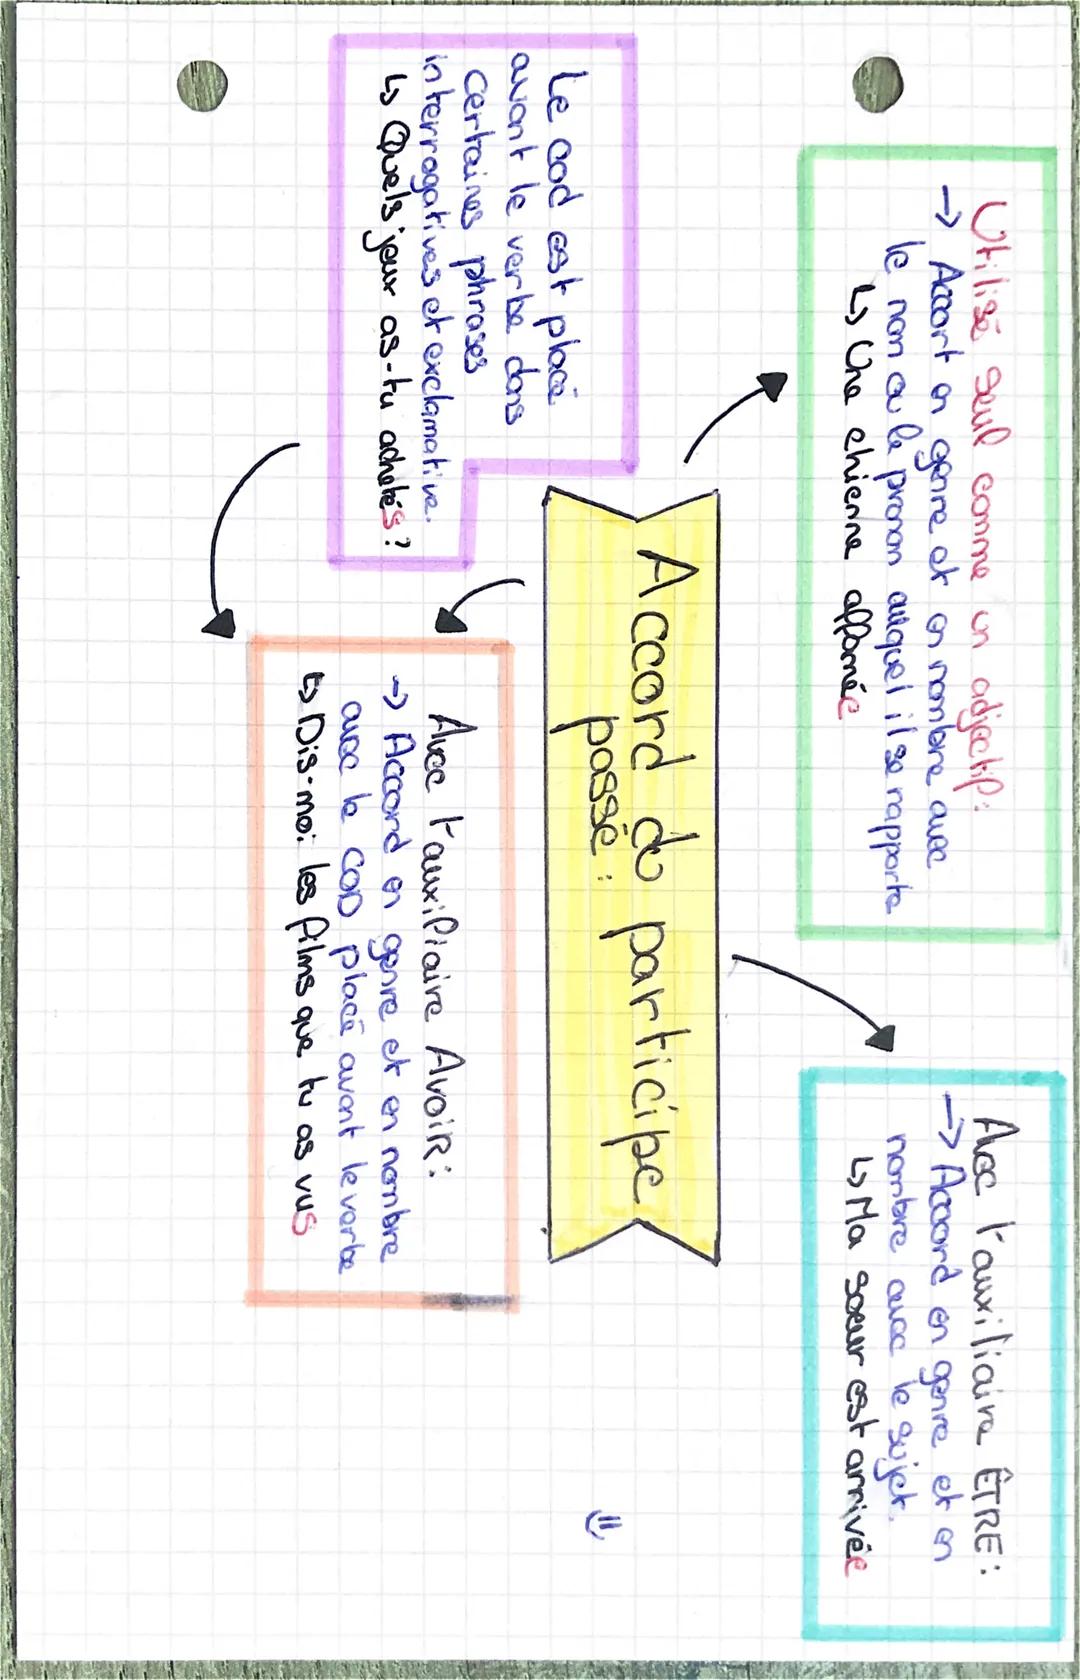 Utilisé seul comme un adjectif:
→ Accort en genre et en nombre avec
le nom ou le pronom auquel il se rapporte
↳ Une chienne affamée
Avec l'auxiliaire ÊTRE:
→ Accord en genre et en
nombre avec le sujet.
↳ Ma soeur est arrivée
Accord du participe
passé:
Le cod est placé
avant le verbe dans
certaines phrases
interrogatives et exclamative.
↳ Quels jeux as-tu achetés?
Avec l'auxiliaire Avoir:
→ Accord en genre et en nombre
avec le COD placé avant le verbe
↳ Dis-moi les films que tu as vus